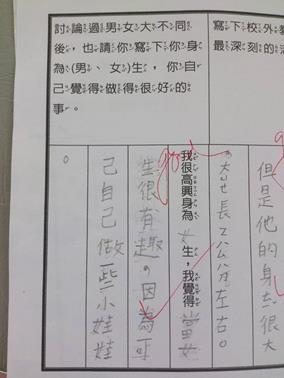 寫下校外
最深刻的
但是他的身ㄊㄧˇ很大
大ㄩㄝ長2公分左右。
討論過男女大不同
後,也請你寫下你身
為(男、女)生,你自
己覺得做得很好的
事。
我很高興身為女生,我覺得當女
生很有趣,因為可
己自己做一些小娃娃
。